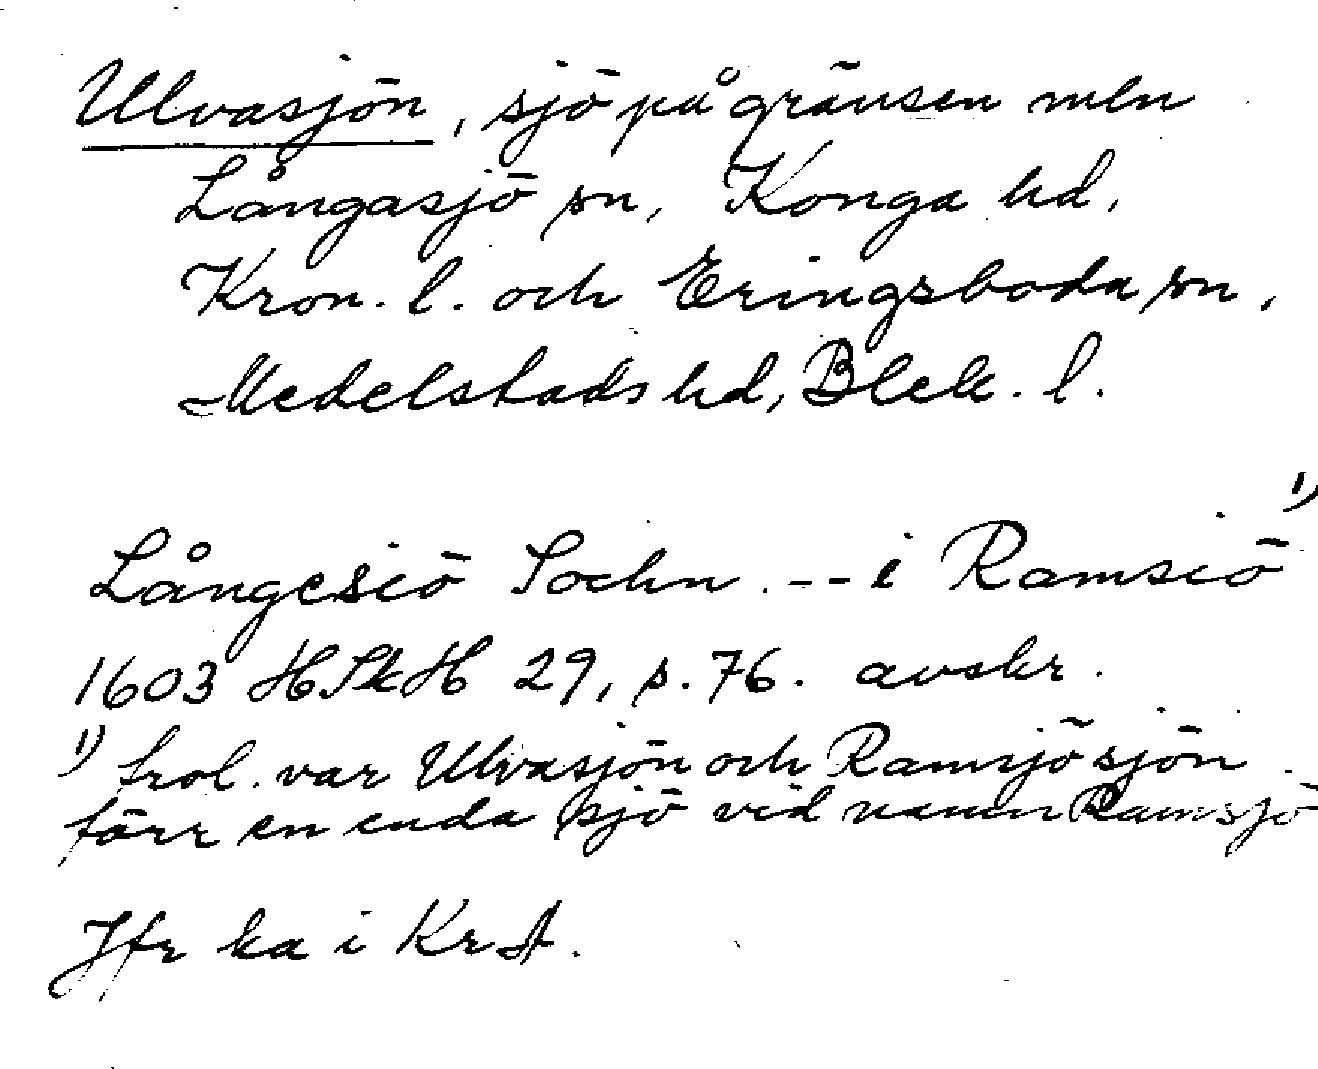 Ulvasjön, sjö på gränsen mln
Långasjö sn, Konga hd,
Kron. l. och Eringsboda sn,
Medelstads hd, Blek. l.
Långesiö Sochn. -- i Ramsiö 1)
1603 HSkH 29, s. 76. avskr.
1) Trol. var Ulvasjön och Ramsjösjön
förr en enda sjö vid namn Ramsjö
Jfr ka i KrA.